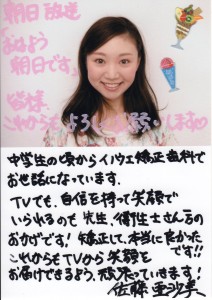 朝日放送
「おはよう
朝日です」
皆様、
これからもよろしくお願いします♡
中学生の頃からイノウエ矯正歯科で
お世話になっています。
TVでも、自信を持って笑顔で
いられるのも先生、衛生士さん方の
おかげです!矯正して、本当に良かった
です!!
これからもTVから笑顔を
お届けできるよう、頑張っていきます!
佐藤亜沙美